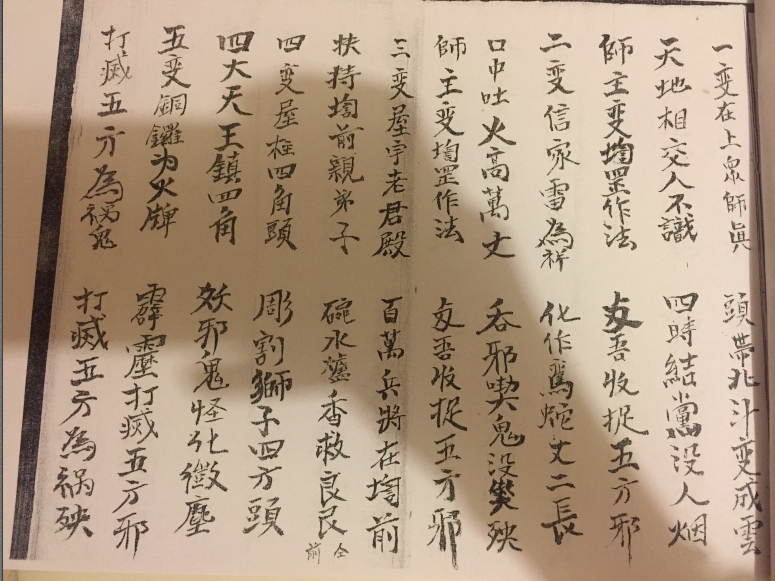 一变在上眾師眞　頭帶北斗变成雲
天地相交人不識　四時結黨没人烟
師主变罡作法　吾收捉五方邪
二变信家雷為祥　化作蛇丈二長
口中吐火高萬丈　吞邪喫鬼没殃
師主变罡作法　吾收捉五方邪
三变屋宇老君殿　百萬兵將在前
扶持前親弟子　碗水爐香救良民　仝前
四变屋柱四角頭　彫割獅子四方頭
四大天王鎮四角　妖邪鬼怪化微塵
五变銅鑼为火牌　霹靂打滅五方邪
打滅五方為禍鬼　打滅五方為禍殃